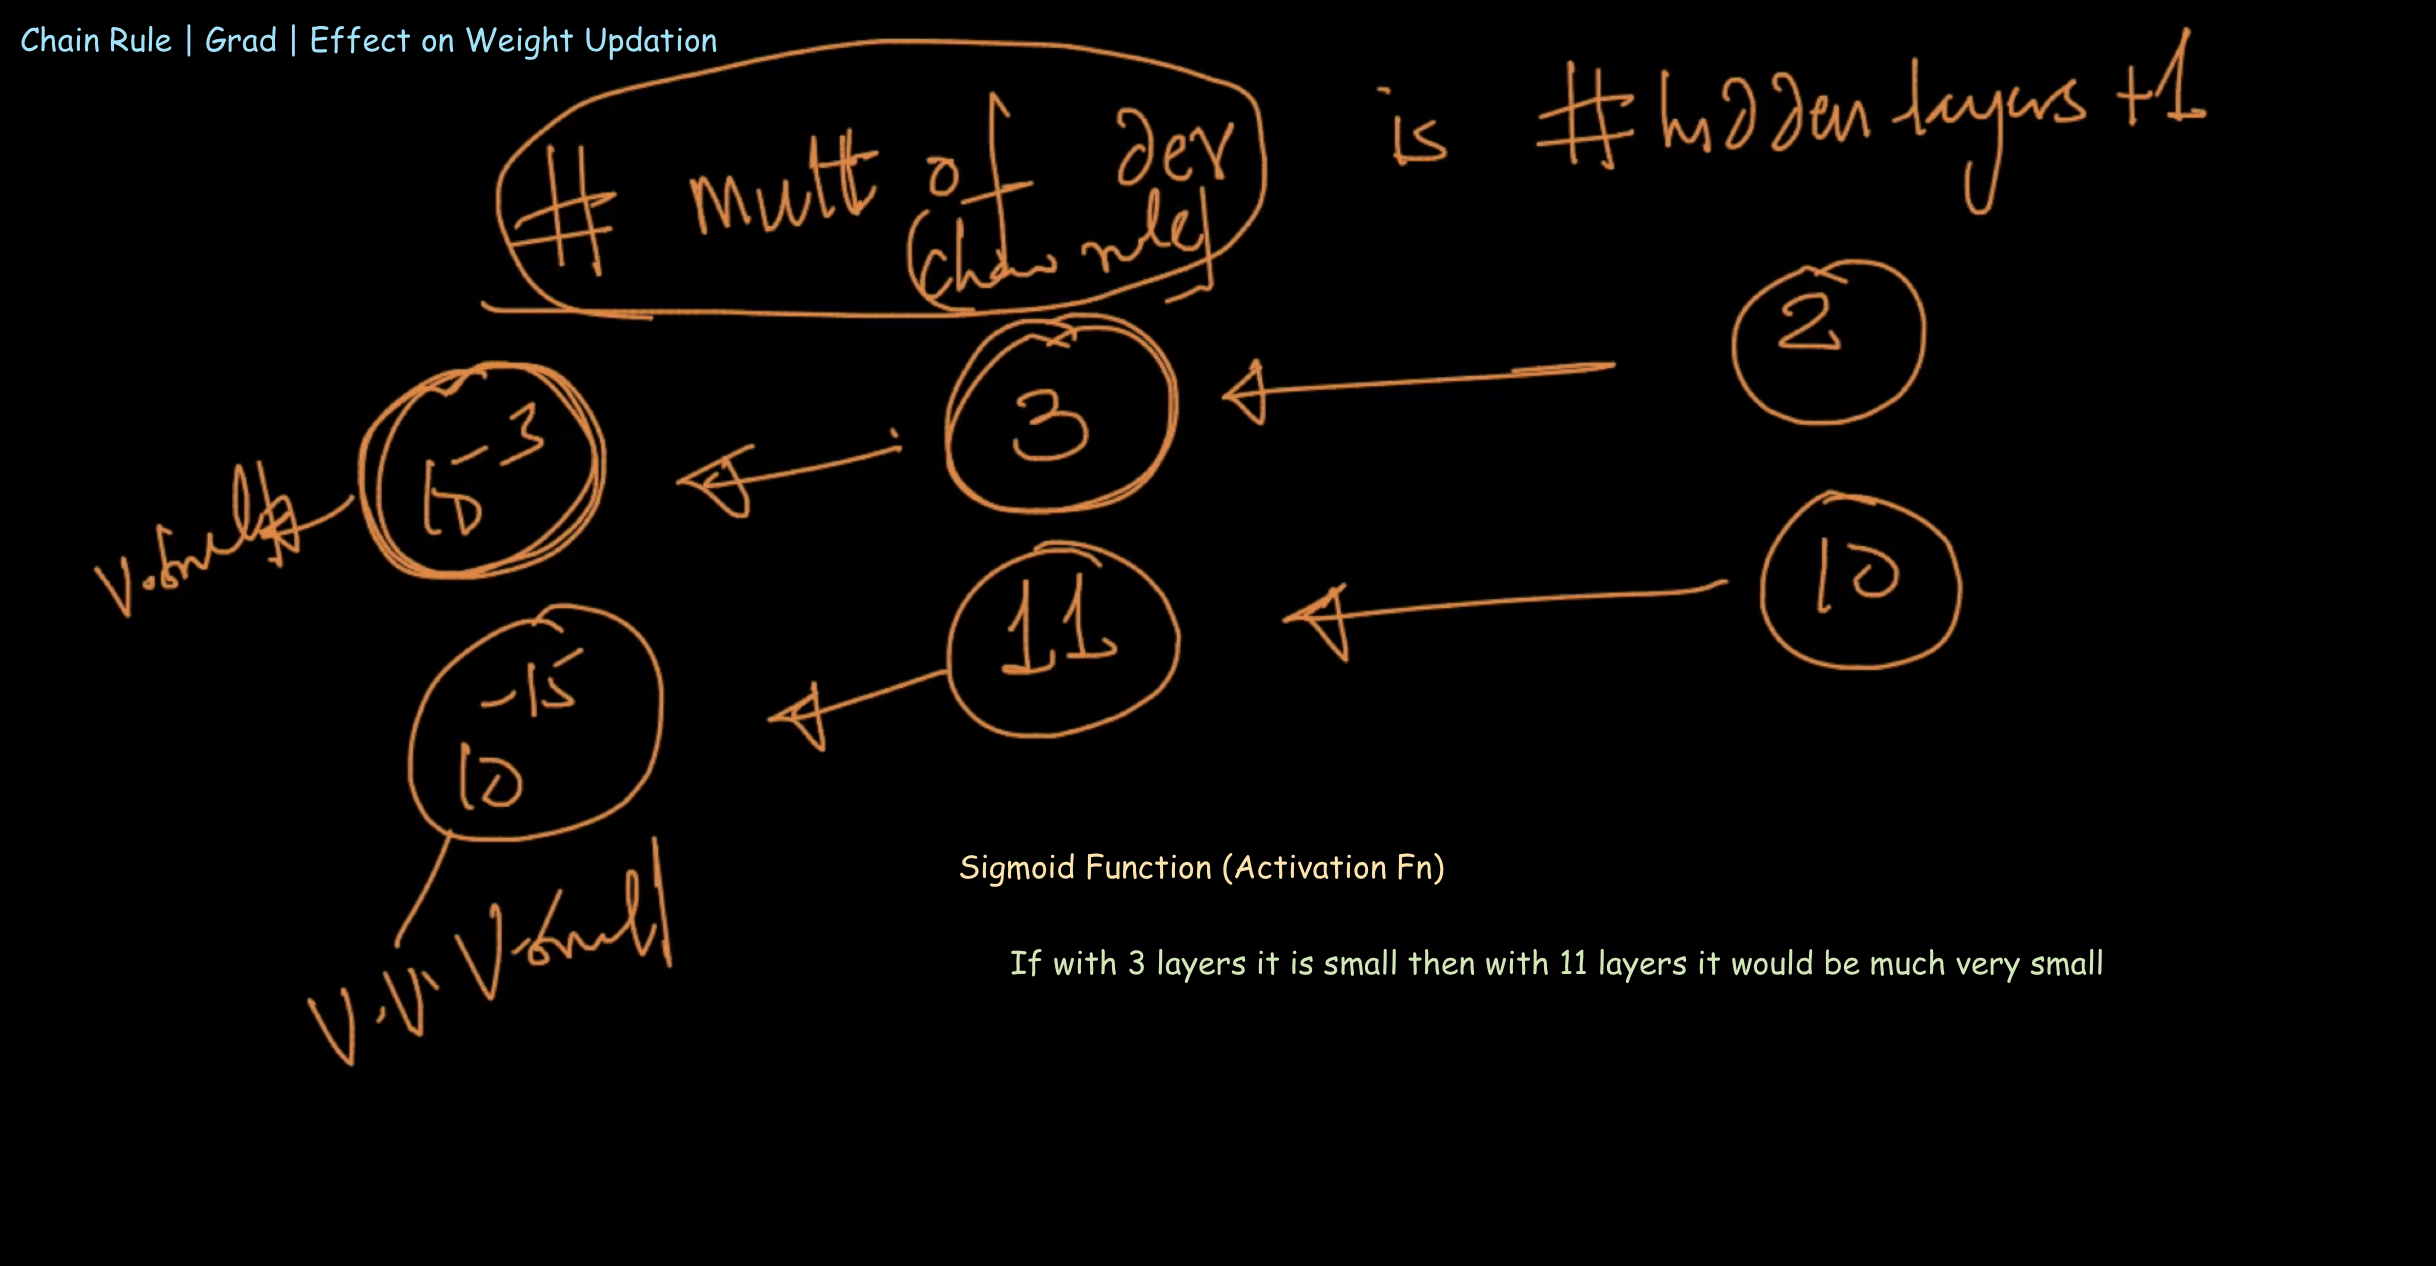 Chain Rule | Grad | Effect on Weight Updation
# mult of der is # hidden layers +1
(Chain rule)
10⁻³ 3 2
v.small
10⁻¹⁵ 11 10
v.v. v.small
Sigmoid Function (Activation Fn)
If with 3 layers it is small then with 11 layers it would be much very small